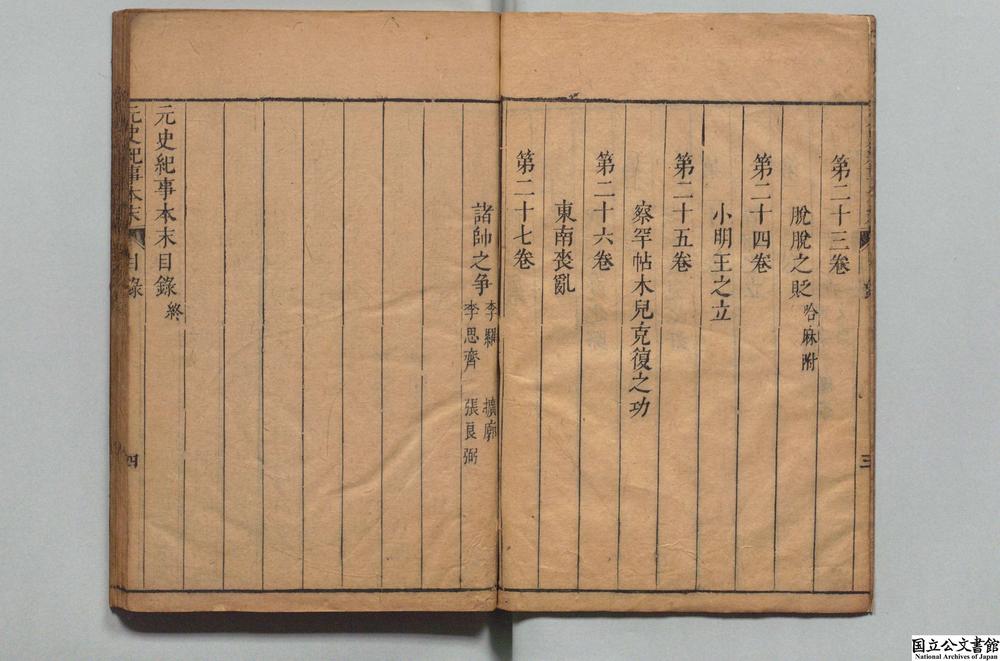 第二十三卷
脫脫之貶 哈麻附
第二十四卷
小明王之立
第二十五卷
察罕帖木兒克復之功
第二十六卷
東南喪亂
第二十七卷
諸帥之爭 孛羅 擴廓 李思齊 張良弼
元史紀事本末目錄 終
元史紀事本末 目錄
四
三
国立公文書館
National Archives of Japan